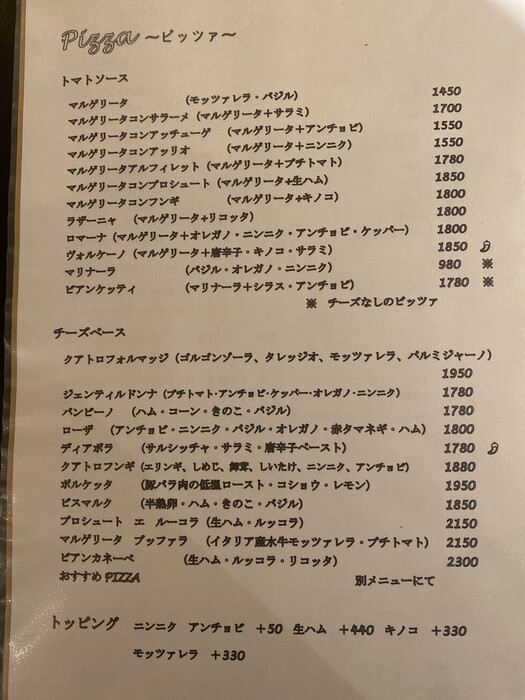 Pizza ～ピッツァ～
トマトソース
マルゲリータ (モッツァレラ・バジル) 1450
マルゲリータコンサラーメ (マルゲリータ+サラミ) 1700
マルゲリータコンアッチューゲ (マルゲリータ+アンチョビ) 1550
マルゲリータコンアッリオ (マルゲリータ+ニンニク) 1550
マルゲリータアルフィレット (マルゲリータ+プチトマト) 1780
マルゲリータコンプロシュート (マルゲリータ+生ハム) 1850
マルゲリータコンフンギ (マルゲリータ+キノコ) 1800
ラザーニャ (マルゲリータ+リコッタ) 1800
ロマーナ (マルゲリータ+オレガノ・ニンニク・アンチョビ・ケッパー) 1800
ヴォルケーノ (マルゲリータ+唐辛子・キノコ・サラミ) 1850
マリナーラ (バジル・オレガノ・ニンニク) 980 ※
ビアンケッティ (マリナーラ+シラス・アンチョビ) 1780 ※
※ チーズなしのピッツァ
チーズベース
クアトロフォルマッジ (ゴルゴンゾーラ、タレッジオ、モッツァレラ、パルミジャーノ)
1950
ジェンティルドンナ (プチトマト・アンチョビ・ケッパー・オレガノ・ニンニク) 1780
バンビーノ (ハム・コーン・きのこ・バジル) 1780
ローザ (アンチョビ・ニンニク・バジル・オレガノ・赤タマネギ・ハム) 1800
ディアボラ (サルシッチャ・サラミ・唐辛子ペースト) 1780
クアトロフンギ (エリンギ、しめじ、舞茸、しいたけ、ニンニク、アンチョビ) 1880
ポルケッタ (豚バラ肉の低温ロースト・コショウ・レモン) 1950
ビスマルク (半熟卵・ハム・きのこ・バジル) 1850
プロシュート エ ルーコラ (生ハム・ルッコラ) 2150
マルゲリータ ブッファラ (イタリア産水牛モッツァレラ・プチトマト) 2150
ビアンカネーベ (生ハム・ルッコラ・リコッタ) 2300
おすすめPIZZA 別メニューにて
トッピング ニンニク アンチョビ +50 生ハム +440 キノコ +330
モッツァレラ +330